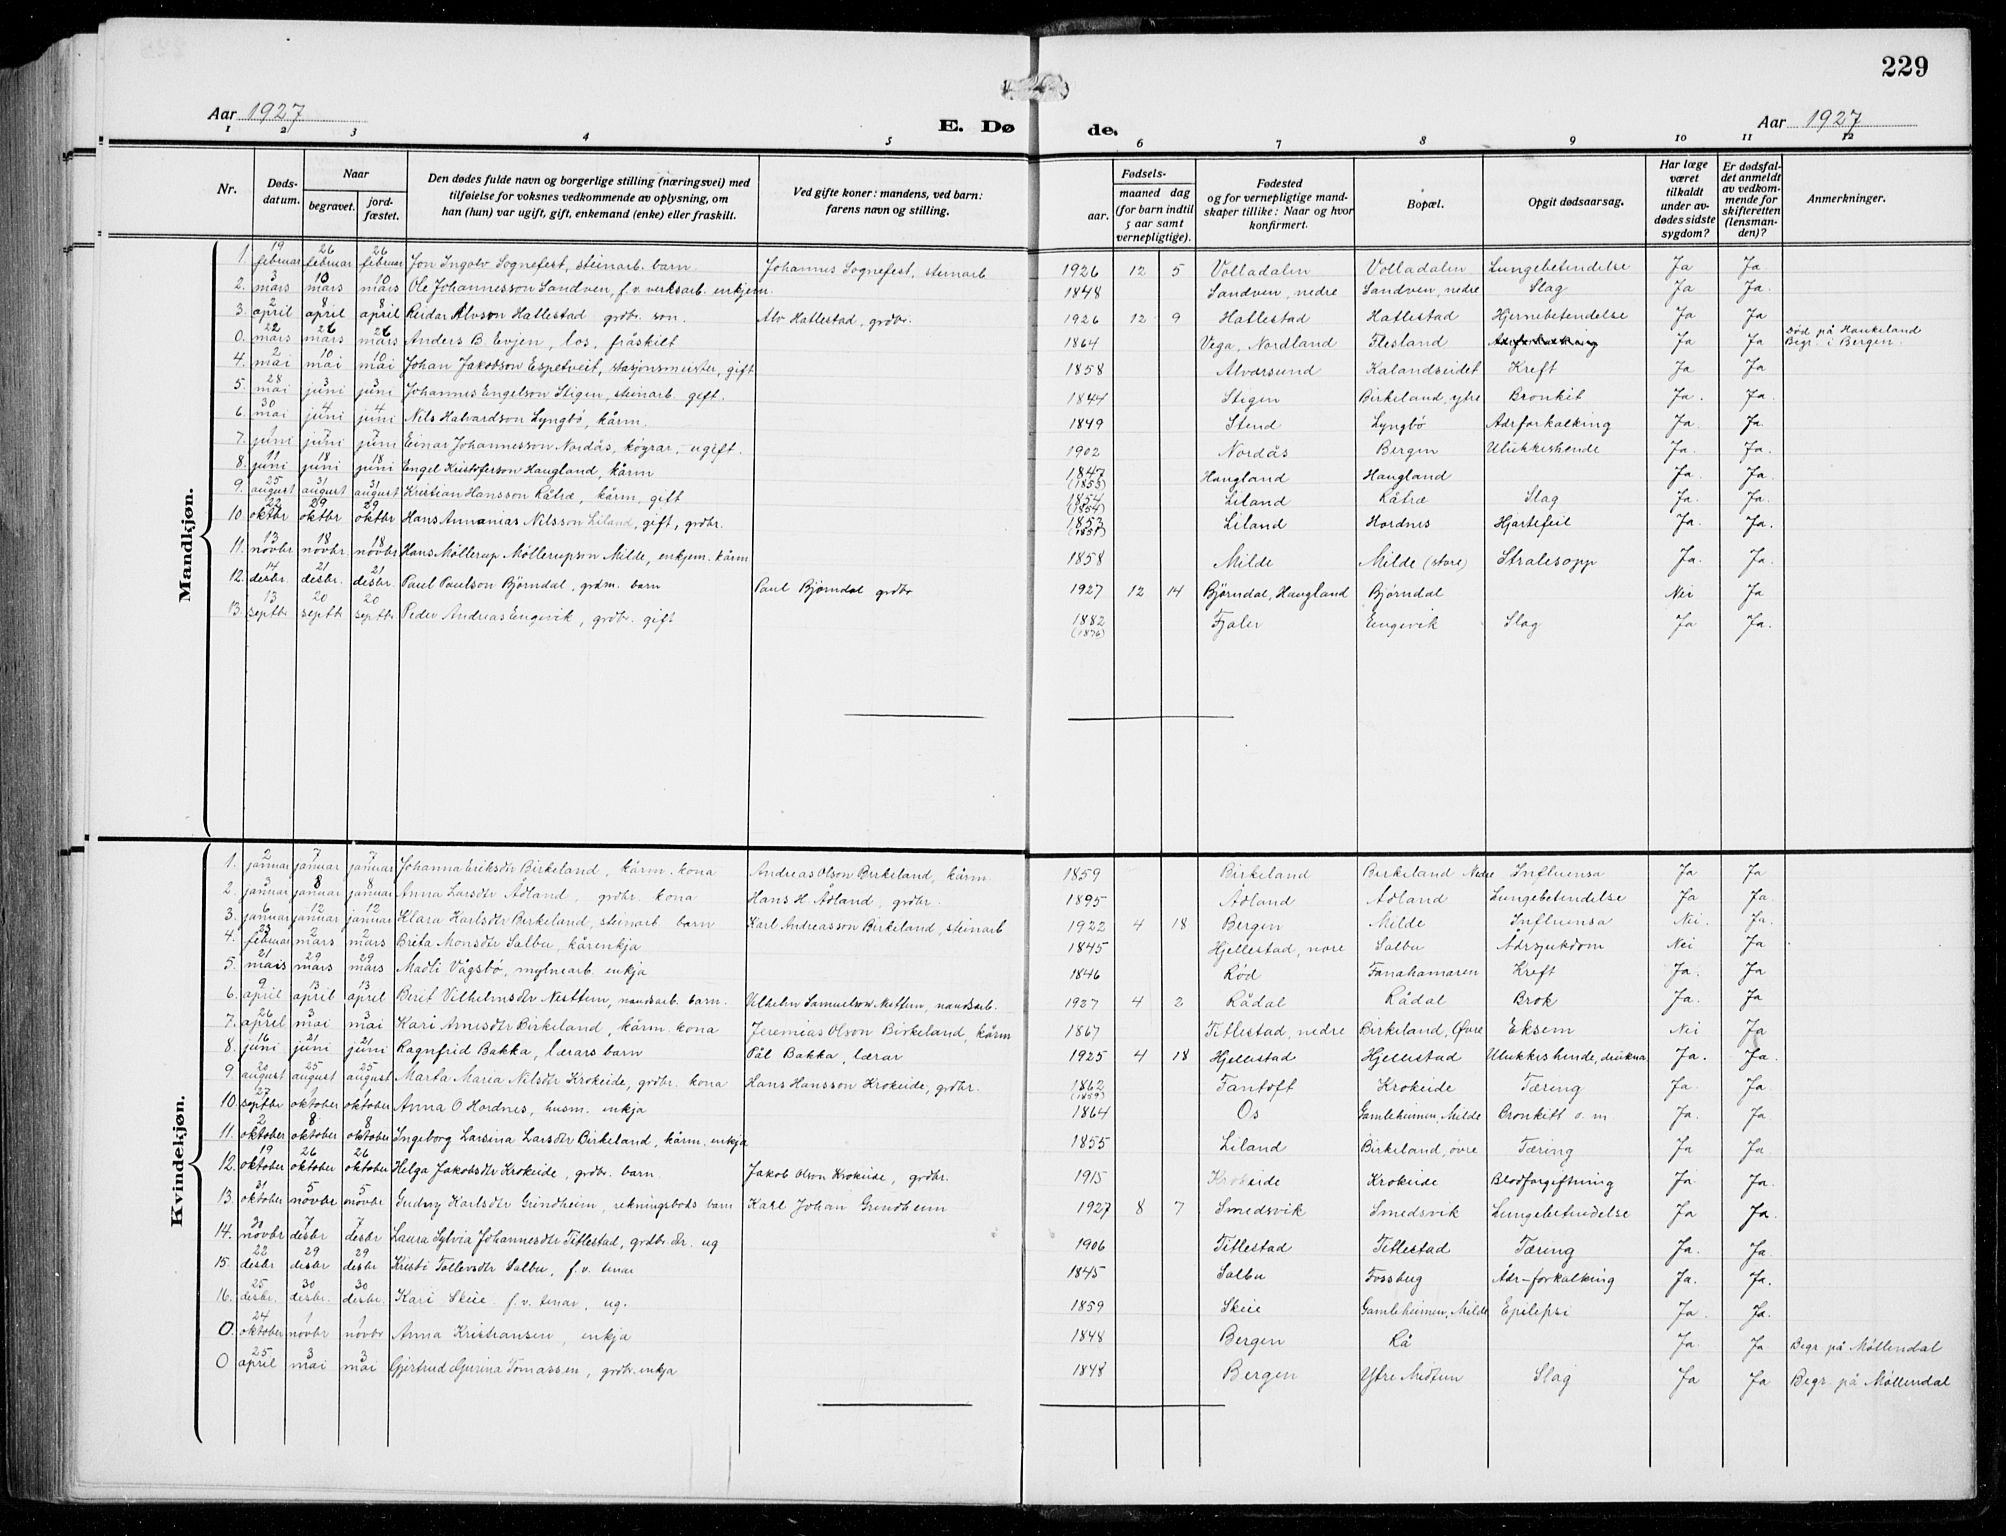 229
Aar 1927
E. Dø de.
Aar 1927
1 2 3 4 5 6 7 8 9 10 11 12
Nr. | Døds-datum. | Naar begravet. | jord-fæstet. | Den dødes fulde navn og borgerlige stilling (næringsvei) med tilføielse for voksnes vedkommende av oplysning, om han (hun) var ugift, gift, enkemand (enke) eller fraskilt. | Ved gifte koner: mandens, ved barn: farens navn og stilling. | Fødsels- aar. | maaned | dag (for barn indtil 5 aar samt vernepligtige). | Fødested og for vernepligtige mandskaper tillike: Naar og hvor konfirmert. | Bopæl. | Opgit dødsaarsag. | Har læge været tilkaldt under avdødes sidste sygdom? | Er dødsfaldet anmeldt av vedkommende for skifteretten (lensmanden)? | Anmerkninger.
Mandkjøn.
1. 19 februar 26 februar 26 februar Jon Ingolv Sognefest, steinarb. barn Johannes Sognefest, steinarb 1926 12 5 Volladalen Volladalen Lungebetendelse Ja Ja
2. 3 mars 10 mars 10 mars Ole Johannesson Sandven, f.v. verksarb. enkjem. 1848 Sandven, nedre Sandven, nedre Slag Ja Ja.
3. 2 april 8 april 8 april Reidar Alvson Hatlestad grdbr. son. Alv Hatlestad, grdbr. 1926 12 9 Hatlestad Hatlestad Hjernebetendelse Ja Ja
0. 22 mars 26 mars 26 mars Anders B. Evjen, los, fråskilt 1864 Vega, Nordland Flesland Ja Ja Død på Haukeland Begr. i Bergen.
4. 2 mai 10 mai 10 mai Johan Jakobson Espetveit, stasjonsmeister, gift 1858 Alversund Kalandseidet Kreft Ja Ja
5. 28 mai 3 juni 3 juni Johannes Engelson Stigen, steinarb. gift. 1844 Stigen Birkeland, ytre Bronkit Ja. Ja.
6. 30 mai 4 juni 4 juni Nils Halvardson Lyngbø, kårm. 1849 Stend Lyngbø Adrforkalking Ja Ja.
7. 1 juni 7 juni 7 juni Einar Johannesson Nordås, køyrar, ugift. 1902 Nordås Bergen Ulukkeshende Ja. Ja.
8. 11 juni 18 juni 18 juni Engel Kristoferson Haugland, kårm 1847 (1853) Haugland Haugland Ja. Ja.
9. 25 august 31 august 31 august Kristian Hansson Råtræ, kårm, gift 1854 (1854) Liland Råtræ Slag Ja. Ja.
10. 22 oktbr 29 oktbr 29 oktbr Hans Annanias Nilsson Liland, gift, grdbr. 1853 Liland Hordnes Hjartefeil Ja. Ja.
11. 13 novbr 18 novbr. 18 novbr. Hans Møllerup Møllerupson Milde, enkjem. kårm 1858 Milde Milde (store) Stralesopp Ja. Ja.
12. 14 desbr. 21 desbr. 21 desbr. Paul Paulson Bjørndal, grdm. barn Paul Bjørndal grdbr 1927 12 14 Bjørndal, Haugland Bjørndal Nei Ja
13. 13 septbr 20 septbr 20 septbr Peder Andreas Engevik, grdbr. gift 1882 (1876) Fjaler Engevik Slag Ja Ja.
Kvindekjøn.
1. 2 januar 7 januar 7 januar Johanna Eriksdtr Birkeland, kårm. kona Andreas Olson Birkeland, kårm. 1859 Birkeland Birkeland Nedre Influensa Ja Ja
2. 3 januar 8 januar 8 januar Anna Larsdtr Ådland, grdbr. kona Hans H. Ådland, grdbr. 1895 Ådland Ådland Lungebetendelse Ja Ja
3. 6 januar 12 januar 12 januar Klara Karlsdtr Birkeland, steinarb. barn Karl Andreasson Birkeland, steinarb 1922 4 18 Bergen Milde Influensa Nei. Ja.
4. 23 februar 2 mars 2 mars Brita Monsdtr Salbu, kårenkja 1845 Hjellestad, nore Salbu Adrsjukdom Nei Ja
5. 21 mars 29 mars 29 mars Madli Vågsbø, mylnearb. enkja 1846 Rød Fanahamaren Kreft Ja. Ja
6. 9 april 13 april 13 april Berit Vilhelmsdtr Nesttun, nandsarb. barn. Vilhelm Samuelson Nesttun, nandsarb. 1927 4 2 Rådal Rådal Brok Ja. Ja
7. 26 april 3 mai 3 mai Kari Arnesdtr Birkeland, kårm. kona Jeremias Olson Birkeland, kårm 1867 Titlestad, nedre Birkeland, Øvre Eksem Nei Ja
8. 16 juni 21 juni 21 juni Ragnfrid Bakka, lærars barn Pål Bakka, lærar 1925 4 18 Hjellestad Hjellestad Ulukkeshende, drukna Ja. Ja.
9. 20 august 25 august 25 august Marta Maria Nilsdtr Krokeide, grdbr. kona Hans Hansson Krokeide, grdbr. 1862 (1859) Fantoft Krokeide Tæring Ja. Ja.
10. 27 septbr 1 oktober 1 oktober Anna O Hordnes, husm. enkja 1864 Os Gamleheimen, Milde Cronkitt o. m Ja. Ja
11. 2 oktober 8 oktober 8 oktober Ingeborg Larsina Larsdtr Birkeland, kårm. enkja 1855 Liland Birkeland, øvre Tæring Ja Ja
12. 19 oktober 26 oktober 26 oktober Helga Jakobsdtr Krokeide, grdbr. barn. Jakob Olson Krokeide, grdbr. 1915 Krokeide Krokeide Blodforgiftning Ja Ja.
13. 31 oktober 5 novbr 5 novbr Gudny Karlsdtr Grindheim, rekningsbods barn Karl Johan Grindheim 1927 8 7 Smedsvik Smedsvik Lungebetendelse Ja Ja.
14. 30 novbr 7 desbr 7 desbr Laura Sylvia Johannesdtr Titlestad, grdbr. dtr. ug 1906 Titlestad Titlestad Tæring Ja. Ja.
15. 22 desbr 29 desbr 29 desbr Kristi Tollevsdtr Salbu, f.v. tenar 1845 Salbu Fossbug Ådr-forkalking Ja. Ja.
16. 25 desbr. 30 desbr. 30 desbr. Kari Skeie f.v. tenar, ug. 1859 Skeie Gamleheimen, Milde Epilepsi Ja. Ja.
0. 24 oktober 1 novbr 1 novbr Anna Kristiansen, enkja 1848 Bergen Rå Ja. Ja Begr. på Møllendal
0 25 april 3 mai 3 mai Gjertrud Gurina Tomassen, grdbr. enkja 1848 Bergen Ytre Midtun Slag Ja Ja Begr. på Møllendal